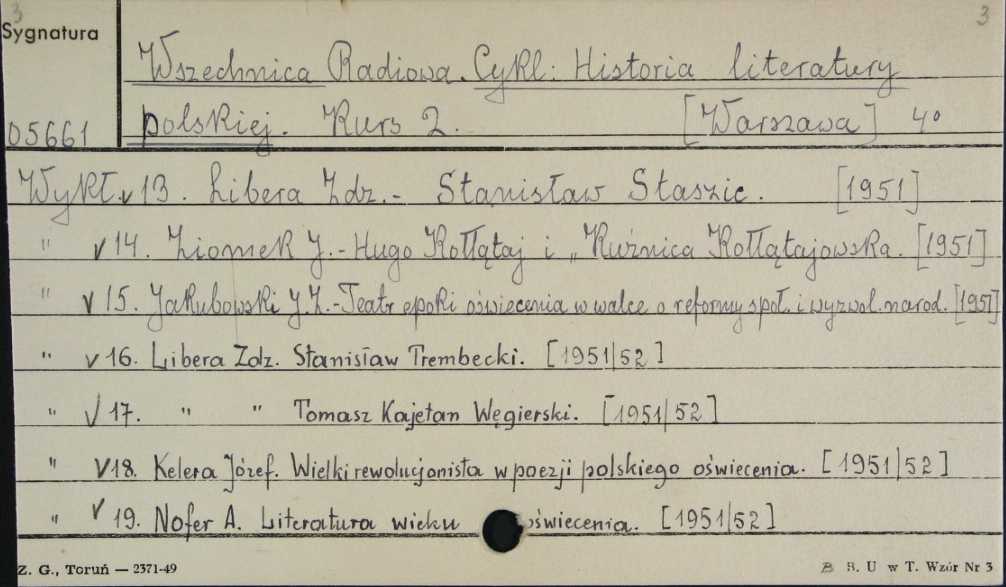 3 3
Sygnatura
Wszechnica Radiowa. Cykl: Historia literatury
05661 polskiej. Kurs 2. [Warszawa] 4°
Wykł. v 13. Libera Zdz. - Stanisław Staszic. [1951]
" v 14. Ziomek J. - Hugo Kołłątaj i „Kuźnica Kołłątajowska. [1951]
" v 15. Jakubowski J.Z. - Teatr epoki oświecenia w walce o reformy społ. i wyzwol. narod. [1951]
" v 16. Libera Zdz. Stanisław Trembecki. [1951/52]
" v 17. " " Tomasz Kajetan Węgierski. [1951/52]
" v 18. Kelera Józef. Wielki rewolucjonista w poezji polskiego oświecenia. [1951/52]
" v 19. Nofer A. Literatura wieku oświecenia. [1951/52]
Z. G., Toruń — 2371-49 B. U w T. Wzór Nr 3